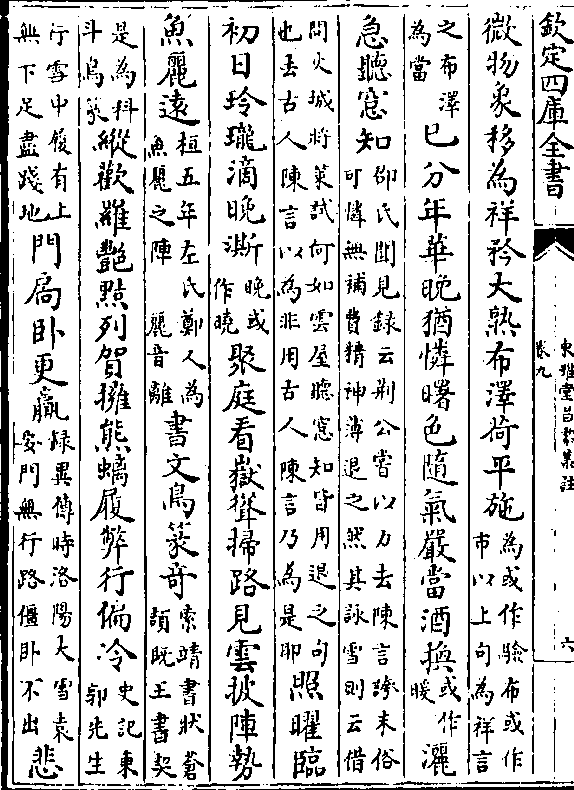 欽定四庫全書
東雅堂昌黎集註
卷九
六
微物象移為祥矜大熟布澤荷平施為或作驗布或作市以上句為祥言
之布澤為當已分年華晚猶憐曙色隨氣嚴當酒換或作暖灑
急聽窓知邵氏聞見錄云荆公嘗以力去陳言誇末俗可憐無補費精神薄退之然其詠雪則云借
問火城將策試何如雲屋聽窓知皆用退之句也去古人陳言以為非用古人陳言乃為是耶照曜臨
初日玲瓏滴晚澌晚或作曉聚庭看嶽聳掃路見雲披陣勢
魚麗遠桓五年左氏鄭人為魚麗之陣麗音離書文鳥篆奇索靖書狀蒼頡既王書契
是為科斗鳥篆縱歡羅艷黠列賀擁熊螭履弊行偏冷史記東郭先生
行雪中履有上無下足盡踐地門扃卧更羸録異傳時洛陽大雪袁安門無行路僵卧不出悲